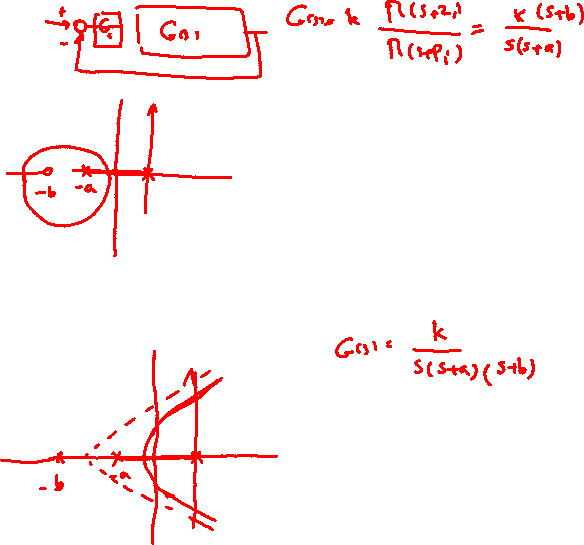 +
-
G(s)
G(s) = k Π(s+zi) / Π(s+Pi) = K(s+b) / s(s+a)
-b -a
G(s) = k / s(s+a)(s+b)
-b -a